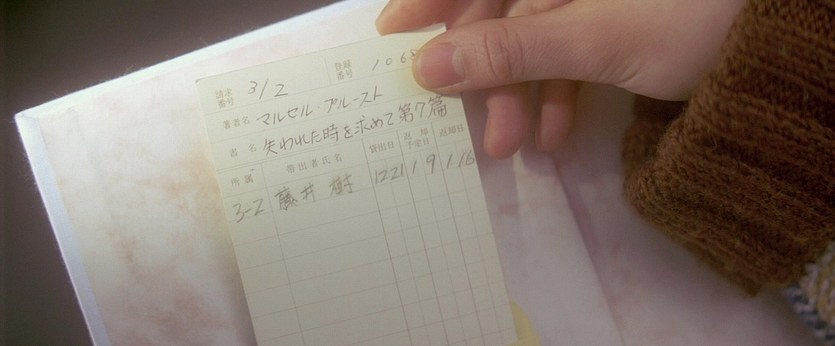 請求番号 3/2 登録番号 106
著者名 マルセル・プルースト
書名 失われた時を求めて第7篇
所属 帯出者氏名 貸出日 返却予定日 返却日
3-2 藤井 樹 12 21 1 9 1 16